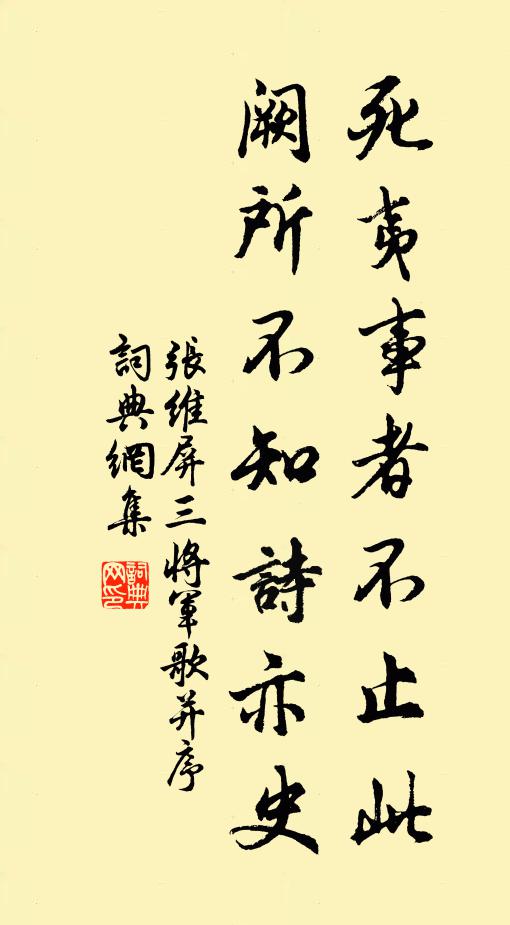 死夷事者不止此
闕所不知詩亦史
張維屏三將軍歌并序
詞典網集
詞典
网印